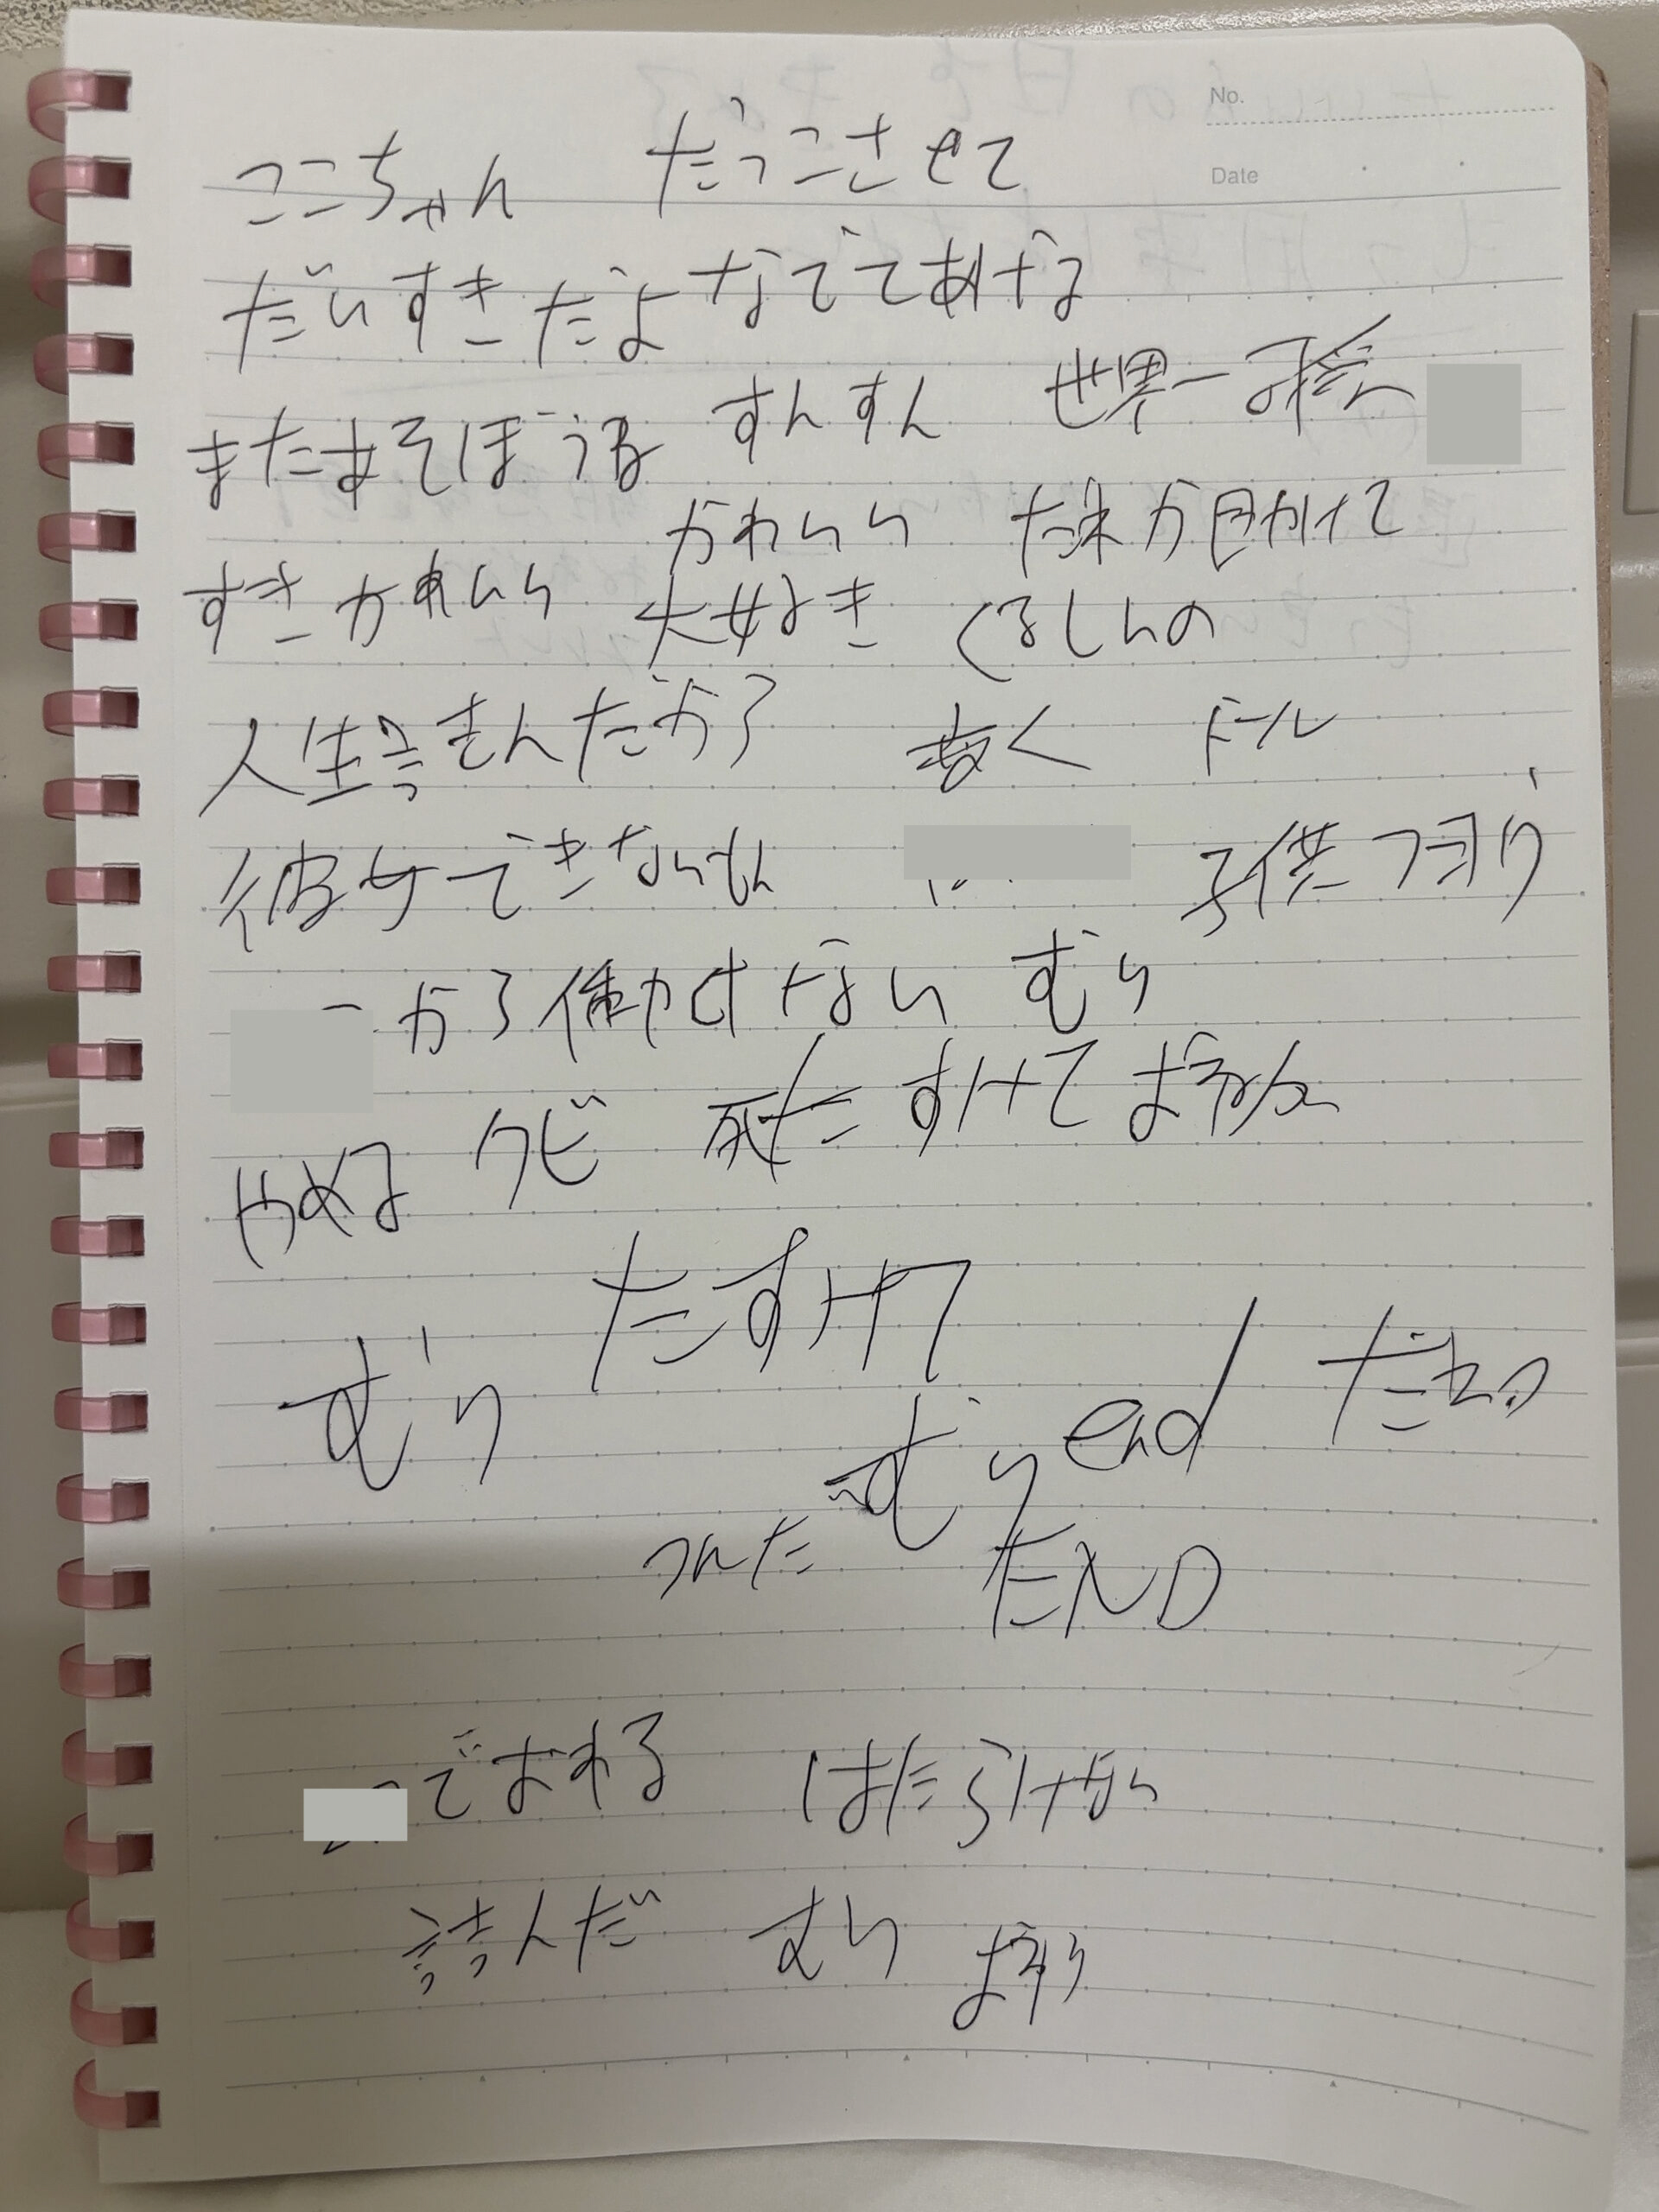 No.
Date
ここちゃん だっこさせて
だいすきだよ なでてあげる
またあそぼうね すんすん 世界一
かわいい た
すき かわいい 大好き くるしいの
人生詰んだから 抜く ドール
彼女できないもん 子供つヨリ
から働けない むり
やめる クビ 死 たすけて
たすけて
むり
むり end だね
つんだ
END
でおわる はたらけない
詰んだ むり